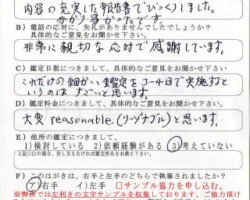 内容の充実した報告書でびっくりしました。
分かり易かったです。
B）電話の応対に、失礼がありませんでしたでしょうか？
具体的なご意見をお聞かせ下さい。
非常に親切な応対で感謝しています。
C）鑑定日数につきまして、具体的なご意見をお聞かせ下さい。
これだけの細かい鑑定を3〜4日で実施すると
いうのはすごいと思います。
D）鑑定料金につきまして、
具体的なご意見をお聞かせ下さい。
大変reasonable（リーズナブル）と思います。
E）他所の鑑定につきまして、
1)検討している 2)依頼経験がある ③考えていない
F）このはがきは、右手と左手のどちらで執筆されましたか？
ア)右手 イ)左手 □サンプル協力を申し込む。